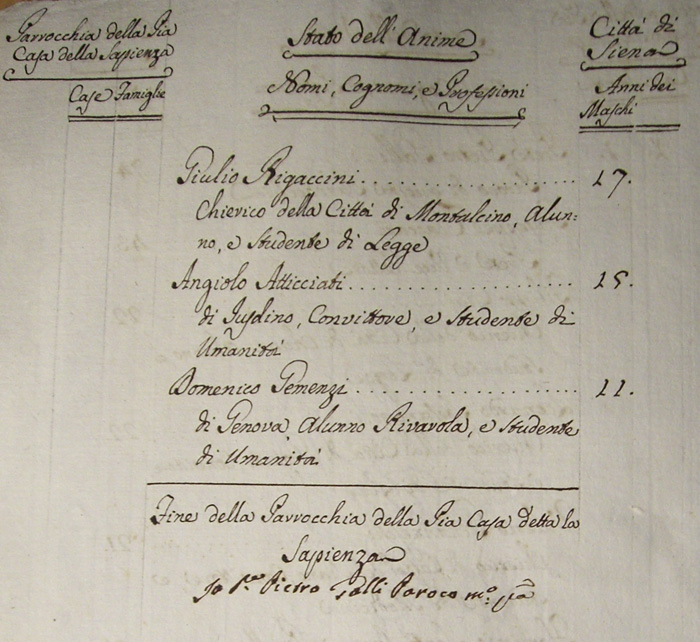 Parrocchia della Pia
Casa della Sapienza
Case Famiglie
Stato dell'Anime
Nomi, Cognomi, e Professioni
Città di
Siena
Anni dei
Maschi
Giulio Rigaccini . . . . . . . . . . . . . . . . . . 17.
Chierico della Città di Montalcino, Alun=
no, e Studente di Legge
Angiolo Atticciati . . . . . . . . . . . . . . . . . . 15.
di Convittore, e Studente di
Umanità
Domenico . . . . . . . . . . . . . . . . . . 11.
di Genova, Alunno Rivarola, e Studente
di Umanità
Fine della Parrocchia della Pia Casa detta la
Sapienza
Io P. Pietro Galli Paroco